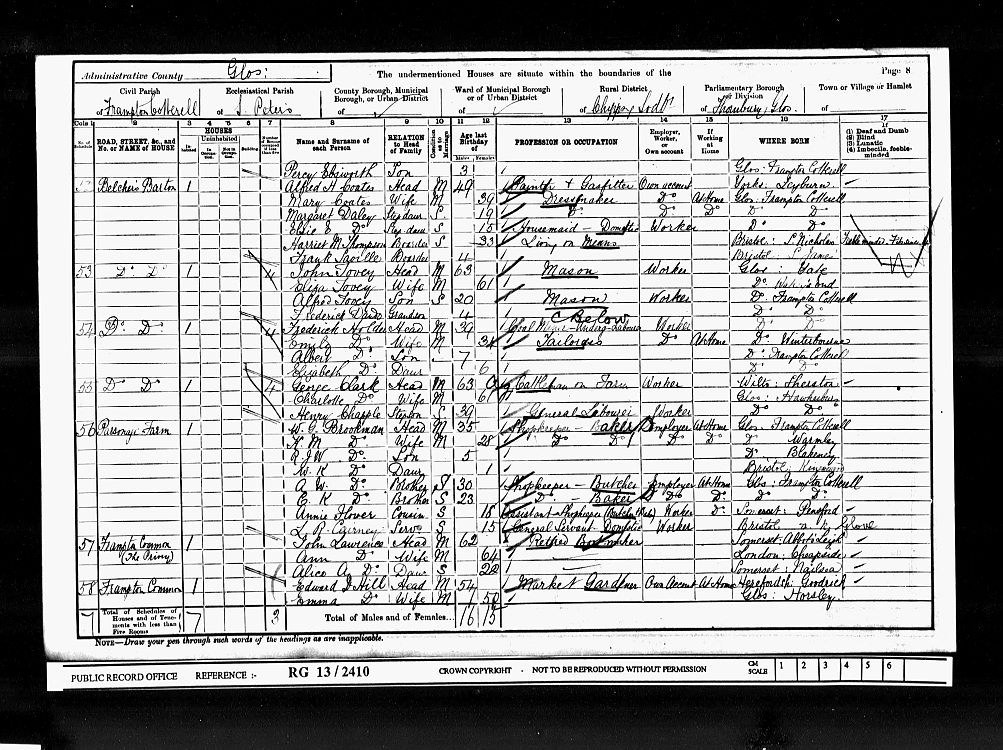 Administrative County Glos:
The undermentioned Houses are situate within the boundaries of the
Page 8
Civil Parish
of Frampton Cotterell
Ecclesiastical Parish
of S. Peters
County Borough, Municipal Borough, or Urban District
of
Ward of Municipal Borough or of Urban District
of
Rural District
of Chipping Sodby
Parliamentary Borough or Division
of Thornbury, Glos.
Town or Village or Hamlet
of
Cols 1 2 3 4 5 6 7 8 9 10 11 12 13 14 15 16 17
No. of Schedule
ROAD, STREET, &c., and No. or NAME of HOUSE
HOUSES
Inhabited
Uninhabited
In Occupation
Not in Occupation
Building
Number of Rooms occupied if less than five
Name and Surname of each Person
RELATION to Head of Family
Condition as to Marriage
Age last Birthday of
Males Females
PROFESSION OR OCCUPATION
Employer, Worker, or Own account
If Working at Home
WHERE BORN
(1) Deaf and Dumb
(2) Blind
(3) Lunatic
(4) Imbecile, feeble-minded
Percy Ebsworth Son 3 Glos: Frampton Cotterell
52 Belchers Barton 1 Alfred H Coates Head M 49 Painter & Gasfitter Own account Yorks: Leyburn
Mary Coates Wife M 39 Dressmaker Do At Home Glos: Frampton Cotterell
Margaret Daley Step daur S 19 Do Do Do Do Do
Elsie E Do Step daur S 15 Housemaid - Domestic Worker Do Do
Harriet M Thompson Boarder S 33 Living on Means Bristol: S. Nicholas Feeble minded
Frank Saville Boarder 4 Bristol S. James
53 Do Do 1 4 John Tovey Head M 63 Mason Worker Glos: Yate
Eliza Tovey Wife M 61 Do
Alfred Tovey Son S 20 Mason Worker Do Frampton Cotterell
Frederick Davis Grandson 4 Do Do
54 Do Do 1 4 Frederick Holder Head M 39 Coal Miner - Underg. Labourer C Below Worker Do Do
Emily Do Wife M 34 Tailoress Do At Home Do Winterbourne
Albert Do Son 7 Do Frampton Cotterell
Elizabeth Do Daur 6 Do Do
55 Do Do 1 4 George Clark Head M 63 Cattleman on Farm Worker Wilts: Sherston
Charlotte Do Wife M 61 Glos: Hawkesbury
Henry Chapple Stepson S 39 General Labourer Worker Do Do
56 Parsonage Farm 1 W. G. Brookman Head M 35 Shopkeeper - Baker Employer At Home Glos: Frampton Cotterell
K. M Do Wife M 28 Do Do Do Do Do Warmley
R J W Do Son 5 Do Blakeney
W. K Do Daur 1 Bristol
A W. Do Brother S 30 Shopkeeper - Butcher Employer At Home Glos: Frampton Cotterell
E. K Do Brother S 23 Do - Baker Do Do Do Do
Annie Flover Cousin S 18 Assistant Shopkeeper Worker Do Somerset: Pensford
Cairney Serv S 15 General Servant Domestic Worker Bristol
57 Frampton Common (The Priory) 1 John Lawrence Head M 62 Retired Bootmaker Somerset: Abbots Leigh
Ann Do Wife M 64 London: Cheapside
Alice A. Do Daur S 22 Somerset: Nailsea
58 Frampton Common 1 Edward J Hill Head M 54 Market Gardener Own Account At Home Herefordsh: Goodrich
Emma Do Wife M 50 Glos: Horsley
7 Total of Schedules of Houses and of Tenements with less than Five Rooms 7 3 Total of Males and of Females... 16 15
NOTE—Draw your pen through such words of the headings as are inapplicable.
PUBLIC RECORD OFFICE REFERENCE :- RG 13/2410 CROWN COPYRIGHT - NOT TO BE REPRODUCED WITHOUT PERMISSION CM SCALE 1 2 3 4 5 6